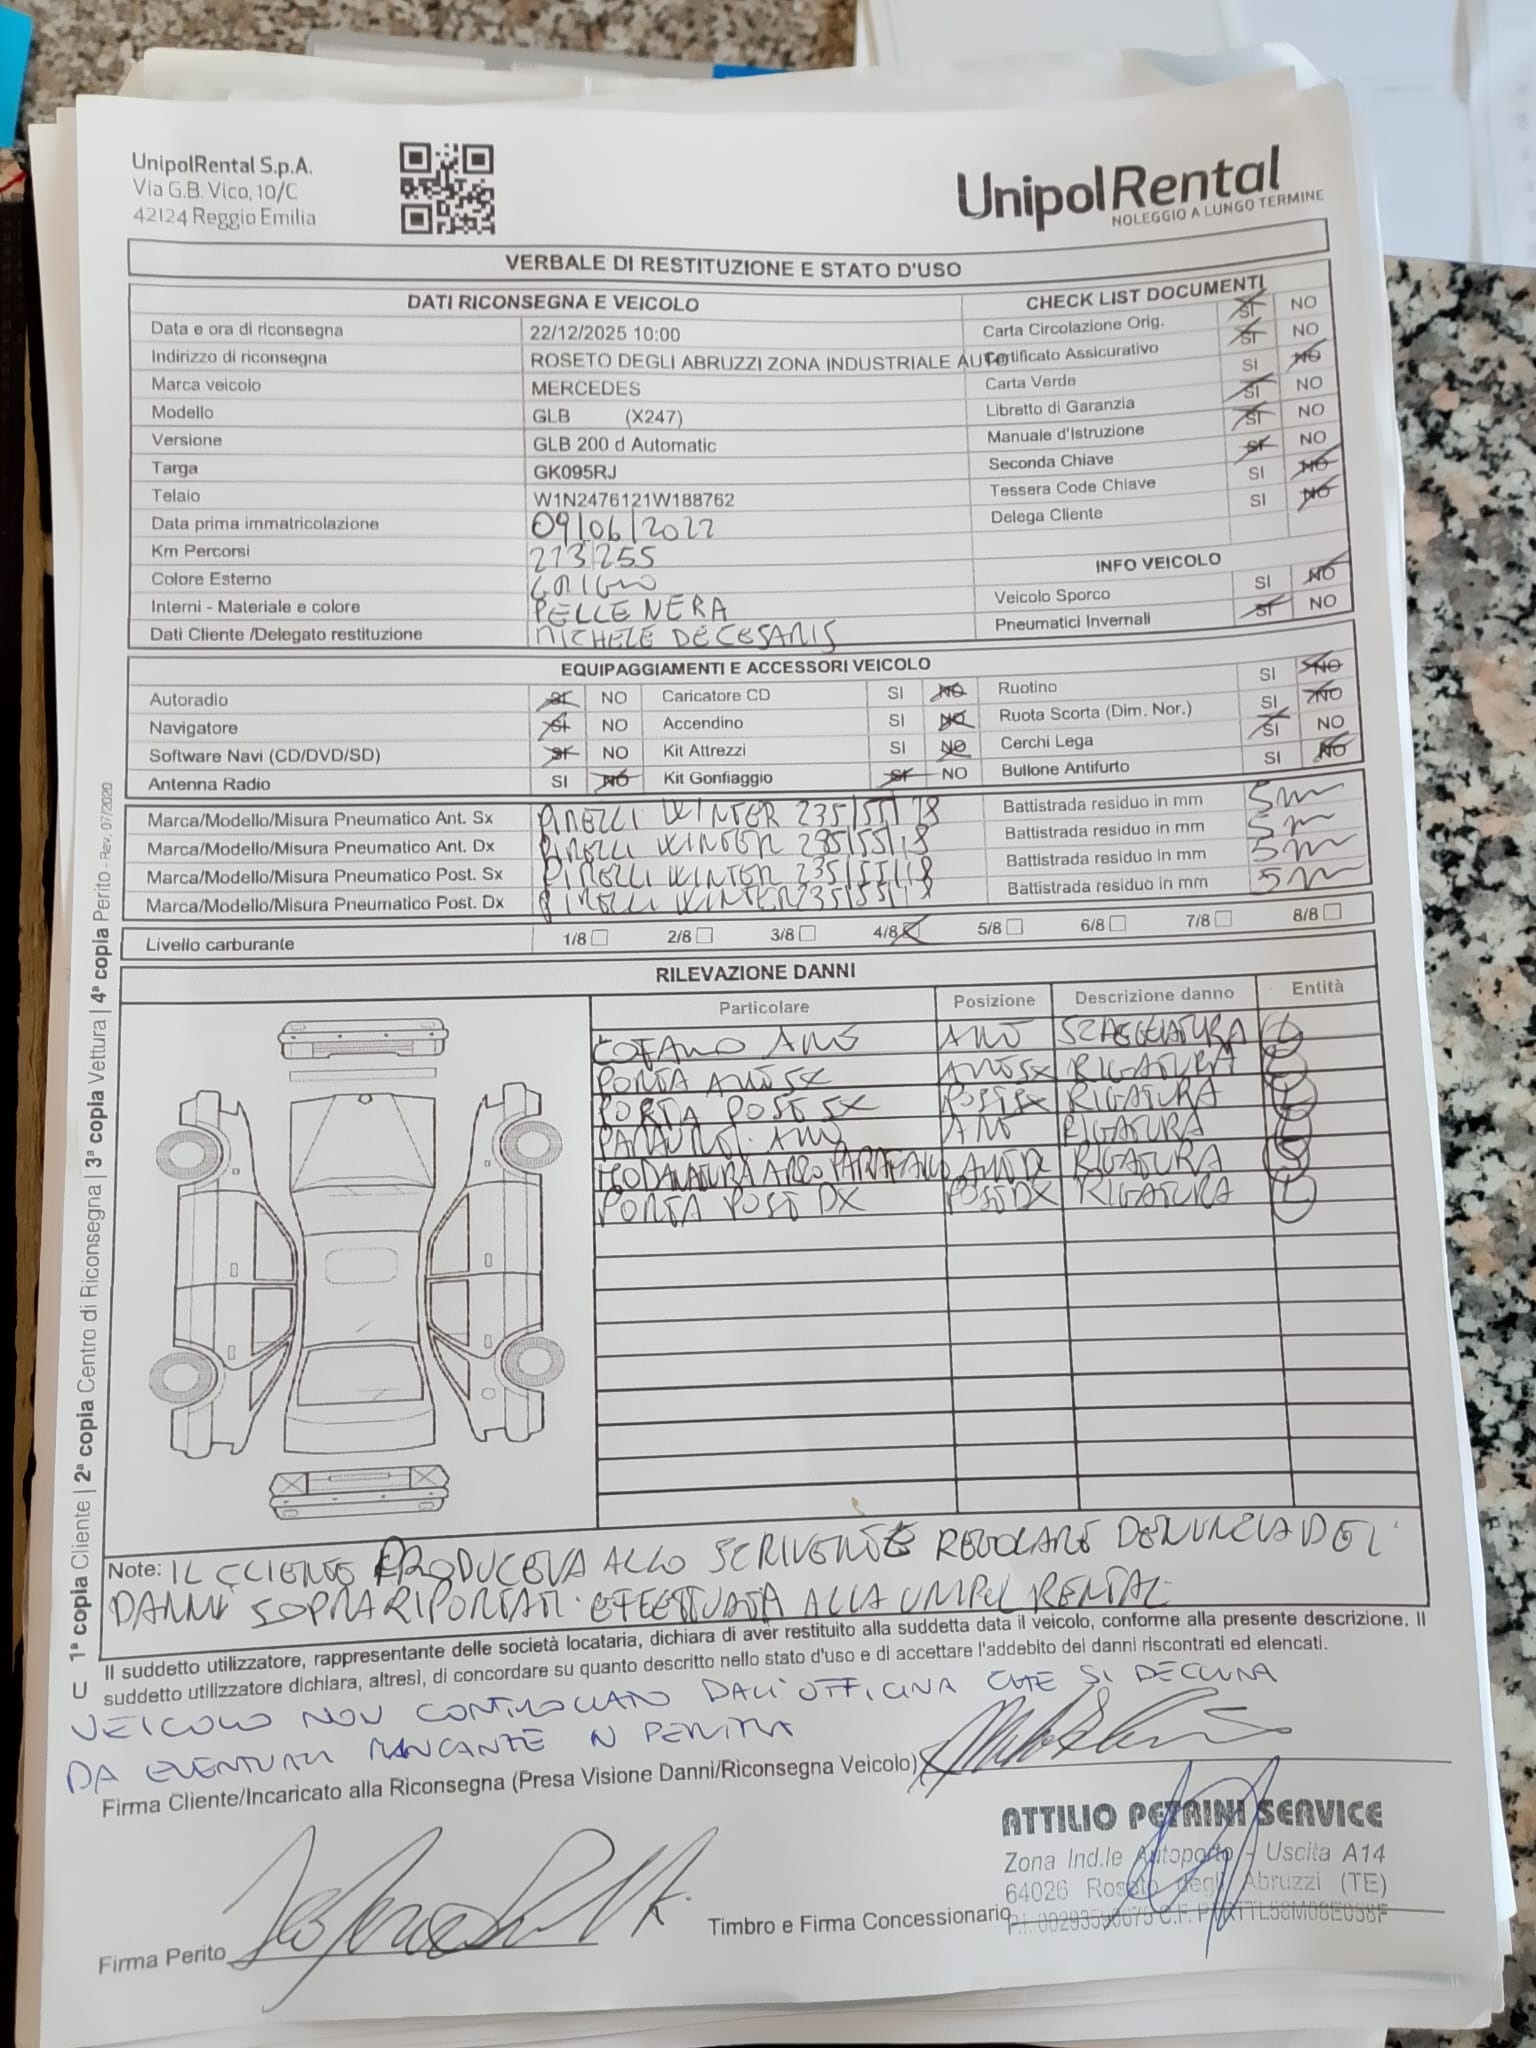 UnipolRental S.p.A.
Via G.B. Vico, 10/C
42124 Reggio Emilia
UnipolRental
NOLEGGIO A LUNGO TERMINE
VERBALE DI RESTITUZIONE E STATO D'USO
DATI RICONSEGNA E VEICOLO
Data e ora di riconsegna 22/12/2025 10:00
Indirizzo di riconsegna ROSETO DEGLI ABRUZZI ZONA INDUSTRIALE AUTO
Marca veicolo MERCEDES
Modello GLB (X247)
Versione GLB 200 d Automatic
Targa GK095RJ
Telaio W1N2476121W188762
Data prima immatricolazione 09/06/2022
Km Percorsi 213255
Colore Esterno
Interni - Materiale e colore PELLE NERA
Dati Cliente /Delegato restituzione MICHELE DECESARIS
CHECK LIST DOCUMENTI
Carta Circolazione Orig. SI NO
Certificato Assicurativo SI NO
Carta Verde SI NO
Libretto di Garanzia SI NO
Manuale d'Istruzione SI NO
Seconda Chiave SI NO
Tessera Code Chiave SI NO
Delega Cliente SI NO
INFO VEICOLO
Veicolo Sporco SI NO
Pneumatici Invernali SI NO
EQUIPAGGIAMENTI E ACCESSORI VEICOLO
Autoradio SI NO Caricatore CD SI NO Ruotino SI NO
Navigatore SI NO Accendino SI NO Ruota Scorta (Dim. Nor.) SI NO
Software Navi (CD/DVD/SD) SI NO Kit Attrezzi SI NO Cerchi Lega SI NO
Antenna Radio SI NO Kit Gonfiaggio SI NO Bullone Antifurto SI NO
Marca/Modello/Misura Pneumatico Ant. Sx PIRELLI WINTER 235/55/18 Battistrada residuo in mm 5mm
Marca/Modello/Misura Pneumatico Ant. Dx PIRELLI WINTER 235/55/18 Battistrada residuo in mm 5m
Marca/Modello/Misura Pneumatico Post. Sx PIRELLI WINTER 235/55/18 Battistrada residuo in mm 5mm
Marca/Modello/Misura Pneumatico Post. Dx PIRELLI WINTER 235/55/18 Battistrada residuo in mm 5mm
Livello carburante 1/8 2/8 3/8 4/8 5/8 6/8 7/8 8/8
RILEVAZIONE DANNI
Particolare Posizione Descrizione danno Entità
COFANO ANT ANT SCAGGIATURA L
PORTA ANT SX ANT SX RIGATURA L
PORTA POST SX POST SX RIGATURA L
PARAURTI ANT ANT RIGATURA L
MODANATURA ARCO PARAFANGO ANT DX RIGATURA
PORTA POST DX POST DX RIGATURA L
Note: IL CLIENTE PRODUCEVA ALLO SCRIVENTE REGOLARE DENUNZIA DEI
DANNI SOPRA RIPORTATI EFFETTUATA ALLA UNIPOL RENTAL
Il suddetto utilizzatore, rappresentante delle società locataria, dichiara di aver restituito alla suddetta data il veicolo, conforme alla presente descrizione. Il
suddetto utilizzatore dichiara, altresì, di concordare su quanto descritto nello stato d'uso e di accettare l'addebito dei danni riscontrati ed elencati.
VEICOLO NON CONTROLLATO DALL'OFFICINA CHE SI DECLINA
DA EVENTUALI MANCANZE IN PERIZIA
Firma Cliente/Incaricato alla Riconsegna (Presa Visione Danni/Riconsegna Veicolo)
ATTILIO PETRINI SERVICE
Zona Ind.le Autoporto - Uscita A14
64026 Roseto degli Abruzzi (TE)
Timbro e Firma Concessionario
Firma Perito
U 1ª copia Cliente | 2ª copia Centro di Riconsegna | 3ª copia Vettura | 4ª copia Perito - Rev. 07/2020